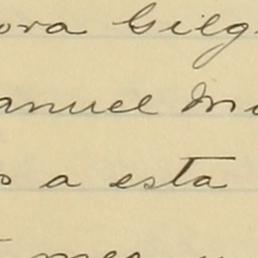 ora Gilg
anuel M
o a esta